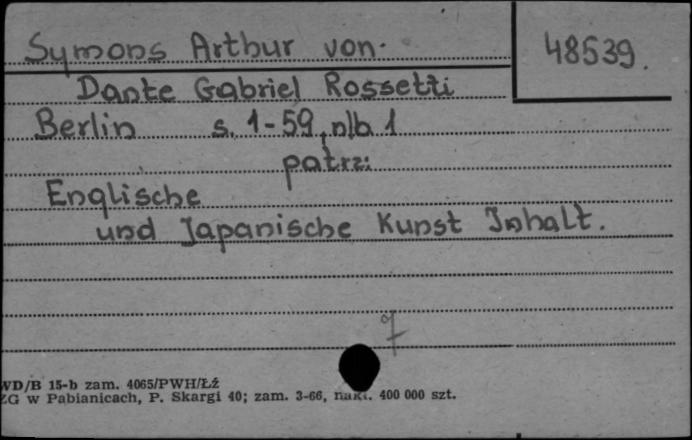 Symons Arthur von.
48539.
Dante Gabriel Rossetti
Berlin s. 1-59, nlb 1
patrz:
Englische
und Japanische Kunst Inhalt.
7
WD/B 15-b zam. 4065/PWH/Łź
ZG w Pabianicach, P. Skargi 40; zam. 3-66, nakł. 400 000 szt.